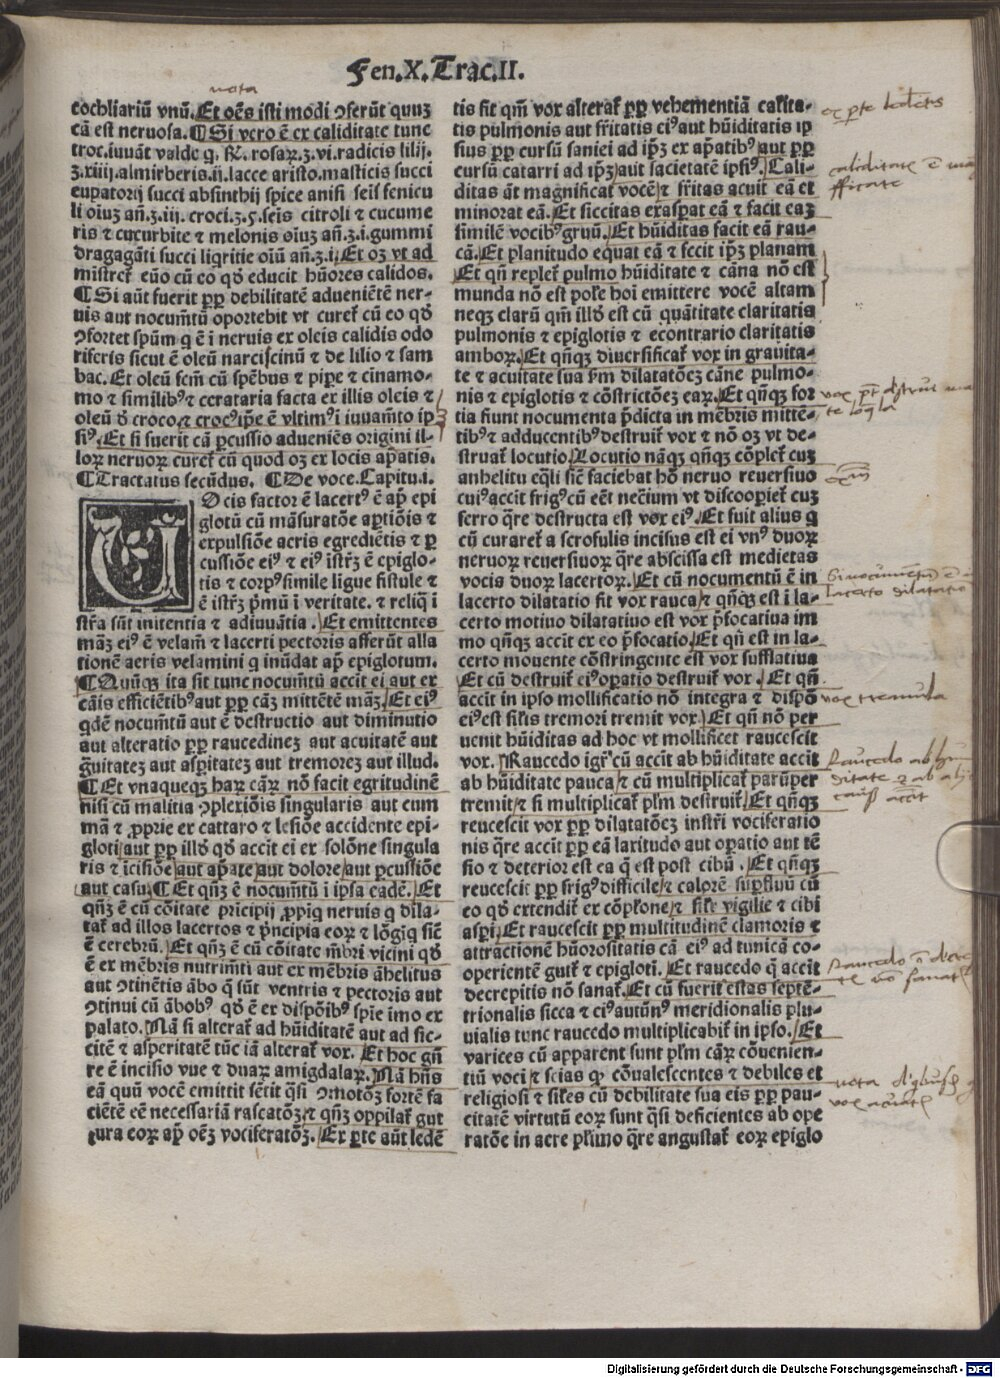 Fen.X.Trac.II.
nota
cochliariū vnū. Et oēs isti modi ꝯferūt quuꝫ
cā est neruosa. ¶Si vero ē ex caliditate tunc
troc.iuuāt valde q̨. ℞. rosaꝝ.ʒ.vi.radicis lilij.
ʒ.xiiij.almirberis.ij.lacce aristo.masticis succi
eupatorij succi absinthij spice anisi seis fenicu
li oiuꝫ añ.ʒ.iij.croci.ʒ.ꝭ.seis citroli ⁊ cucume
ris ⁊ cucurbite ⁊ melonis oiuꝫ añ.ʒ.i.gummi
dragagāti succi liqritie oiū añ.ʒ.i. Et oꝫ vt ad
mistreť eūo cū eo qď educit hūores calidos.
¶Si aūt fuerit ꝓp debilitatē adueniētē ner-
uis aut nocum̄tū oportebit vt cureť cū eo qď
ꝯfortet spūm q ē ī neruis ex oleis calidis odo
riferis sicut ē oleū narciscinū ⁊ de lilio ⁊ sam
bac. Et oleū fcm̄ cū spēbus ⁊ pipe ⁊ cinamo-
mo ⁊ similibꝰ ⁊ cerataria facta ex illis oleis ⁊
oleū ď croco, ⁊ crocꝰ ip̄e ē vltimꝰ ī iuuam̄to ip
siꝰ. Et si fuerit cā ꝑcussio adueniēs origini il-
loꝝ neruoꝝ cureť cū quod oꝫ ex locis ap̄atis.
¶Tractatus secūdus. ¶De voce. Capitu.i.
VOcis factor ē lacertꝰ ē ap̄ epi
glotū cū māsuratōe aptiōis ⁊
expulsiōe aeris egrediētis ⁊ ꝑ
cussiōe eiꝰ ⁊ eiꝰ istrꝫ ē epiglo-
tis ⁊ corpꝰ simile ligue fistule ⁊
ē istrꝫ pm̄ū ī veritate. ⁊ reliq̄ ī
str̄a sūt initentia ⁊ adiuuātia. Et emittentes
māꝫ eiꝰ ē velam̄ ⁊ lacerti pectoris afferūt alla
tionē aeris velamini q inūdat ap̄ epiglotum.
¶Quūqꝫ ita sit tunc nocum̄tū accit ei aut ex
cāis efficiētibꝰ aut ꝓp cāꝫ mittētē māꝫ. Et eiꝰ
qdē nocum̄tū aut ē destructio aut diminutio
aut alteratio ꝓp raucedineꝫ aut acuitatē aut
ḡuitateꝫ aut asꝑitateꝫ aut tremoreꝫ aut illud.
¶Et vnaqueqꝫ haꝝ cāꝝ nō facit egritudinē
nisi cū malitia ꝯplexiōis singularis aut cum
mā ⁊ ꝓprie ex cattaro ⁊ lesiōe accidente epi-
gloti aut ꝓp illď qď accit ei ex solōne singula
ris ⁊ īcisiōe aut ap̄ate aut dolore aut ꝑcussiōe
aut casu. ¶Et qn̄ꝫ ē nocum̄tū ī ipsa eadē. Et
qn̄ꝫ ē cū cōitate pricipij ꝓpīq neruis q dila-
taň ad illos lacertos ⁊ pncipia eoꝝ ⁊ lōgīq sic̄
ē cerebrū. Et qn̄ꝫ ē cū cōitate m̄bri vicini qď
ē ex mēbris nutrim̄ti aut ex mēbris āhelitus
aut ꝯtinētis ābo q̄ sūt ventris ⁊ pectoris aut
ꝯtinui cū ābobꝰ qď ē ex dispōibꝰ spie imo ex
palato. Nā si alteraň ad hūiditatē aut ad sic-
citē ⁊ asperitatē tūc iā alteraň vox. Et hoc gn̄
re ē incisio vue ⁊ duaꝝ amigdalaꝝ. Nā hn̄s
eā quū vocē emittit sētit q̄si ꝯmotōꝫ fortē fa
ciētē eē necessariā rascatōꝫ ⁊ qn̄ꝫ oppilaň gut
tura eoꝝ ap̄ oēꝫ vociferatōꝫ. Ex ꝑte aūt ledē
tis fit qm̄ vox alteraň ꝓp vehementiā calita-
tis pulmonis aut fritatis eiꝰ aut hūiditatis ip
sius ꝓp cursū saniei ad ip̄ꝫ ex ap̄atibꝰ aut ꝓp
cursū catarri ad ip̄ꝫ aut societatē ipsiꝰ. Cali-
ditas āt magnificat vocē ⁊ fritas acuit eā et
minorat eā. Et siccitas exasꝑat eā ⁊ facit eaꝫ
similē vocibꝰ gruū. Et hūiditas facit eā rau-
cā. Et planitudo equat eā ⁊ fecit ip̄ꝫ planam
Et qn̄ repleť pulmo hūiditate ⁊ cāna nō est
munda nō est pole hoi emittere vocē altam
neqꝫ clarū qm̄ illď est cū quātitate claritatis
pulmonis ⁊ epiglotis ⁊ econtrario claritatis
amboꝝ. Et qn̄qꝫ diuersificaň vox in grauita-
te ⁊ acuitate sua ẜm dilatatōeꝫ cāne pulmo-
nis ⁊ epiglotis ⁊ cōstrictōeꝫ eaꝝ. Et qn̄qꝫ for
tia fiunt nocumenta p̄dicta in mēbris mittē-
tibꝰ ⁊ adducentibꝰ destruiť vox ⁊ nō oꝫ vt de-
struať locutio. Locutio nāqꝫ qn̄qꝫ cōpleť cuꝫ
anhelitu eq̄li sic̄ faciebat hō neruo reuersiuo
cuiꝰ accit frigꝰ cū eēt nec̄ium vt discoopieť cuꝫ
ferro q̄re destructa est vox eiꝰ. Et fuit alius q
cū curareť a scrofulis incisus est ei vnꝰ duoꝝ
neruoꝝ reuersiuoꝝ q̄re abscissa est medietas
vocis duoꝝ lacertoꝝ. Et cū nocumentū ē in
lacerto dilatatio fit vox rauca ⁊ qn̄qꝫ est ī la-
certo motiuo dilatatiuo est vox p̄focatiua im
mo qn̄qꝫ accit ex eo p̄focatio. Et qn̄ est in la-
certo mouente cōstringente est vox sufflatiua
Et cū destruiť eiꝰ oꝑatio destruiť vox. Et qn̄
accit in ipso mollificatio nō integra ⁊ dispō
eiꝰ est silis tremori tremit vox. Et qn̄ nō per
uenit hūiditas ad hoc vt mollificet raucescit
vox. Raucedo igr̄ cū accit ab hūiditate accit
ab hūiditate pauca ⁊ cū multiplicaň parūper
tremit ⁊ si multiplicaň plm̄ destruiť. Et qn̄qꝫ
reucescit vox ꝓp dilatatōeꝫ instri vociferatio
nis q̄re accit ꝓp eā laritudo aut oꝑatio aut tē
sio ⁊ deterior est ea q̄ est post cibū. Et qn̄qꝫ
reucescit ꝓp frigꝰ difficile ⁊ calorē suꝑfluū cū
eo qď extendiť ex cōp̄ssione ⁊ silr̄ vigilie ⁊ cibi
asꝑi. Et raucescit ꝓp multitudinē clamoris ⁊
attractionē hūorositatis cā eiꝰ ad tunicā co-
operientē guť ⁊ epigloti. Et raucedo q̄ accit
decrepitis nō sanaň. Et cū fuerit estas septē-
trionalis sicca ⁊ eiꝰ autūnꝰ meridionalis plu-
uialis tunc raucedo multiplicabiť in ipso. Et
varices cū apparent sunt plm̄ cāꝝ cōuenien-
tiū voci ⁊ scias ꝙ cōualescentes ⁊ debiles et
religiosi ⁊ siles cū debilitate sua eis ꝓp pau-
citatē virtutū eoꝝ sunt q̄si deficientes ab ope
ratōe in aere plimo q̄re angustaň eoꝝ epiglo
caliditatē ē
vox tremula
Raucedo
nota
Digitalisierung gefördert durch die Deutsche Forschungsgemeinschaft - DFG